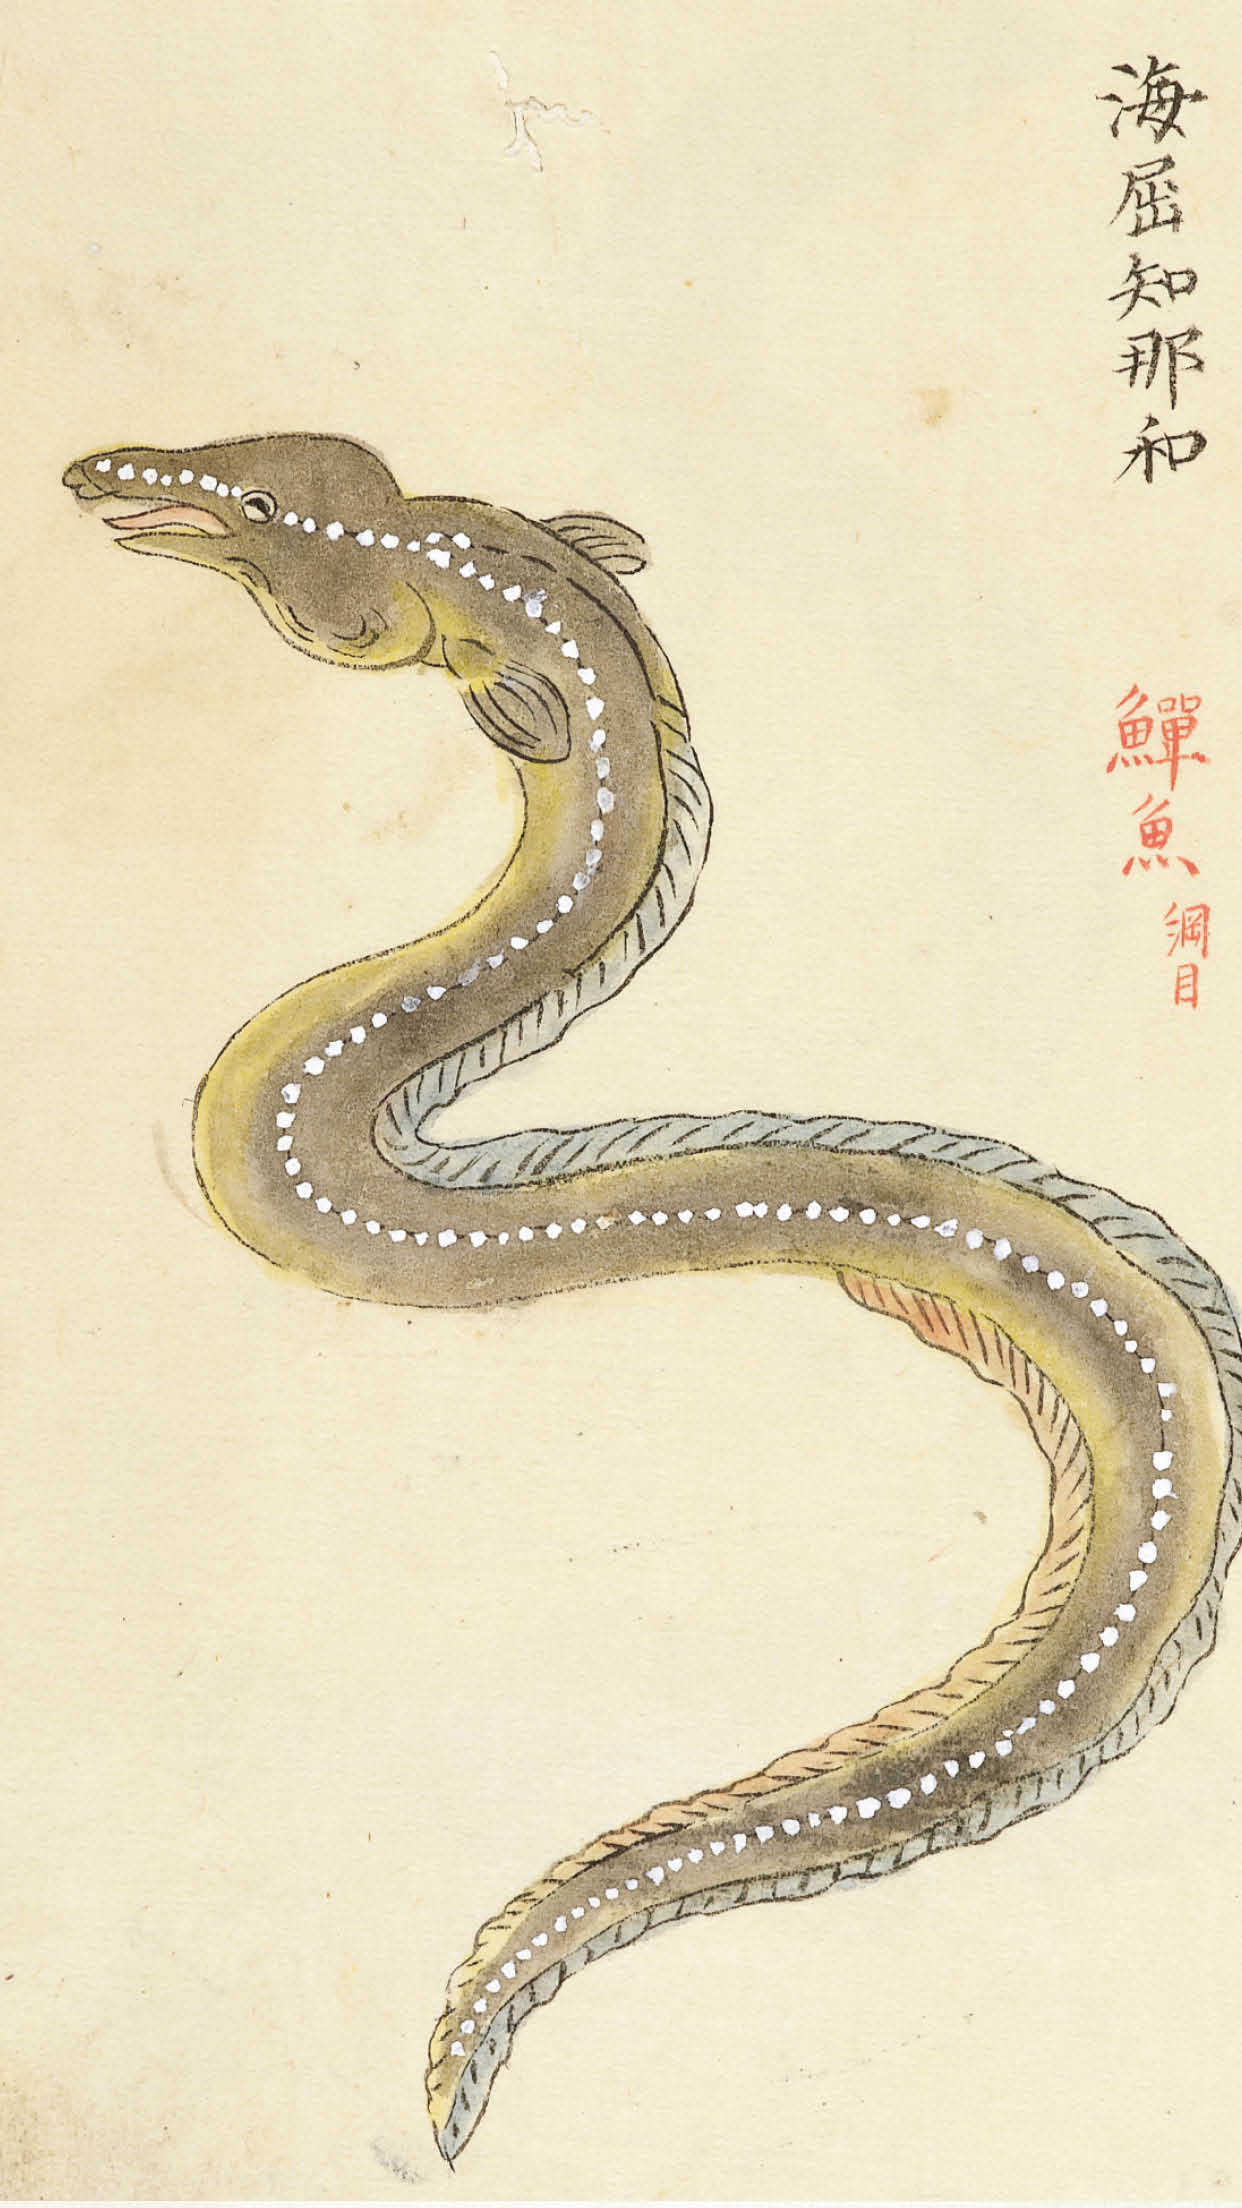 海屈知那和
鱓魚 綱目